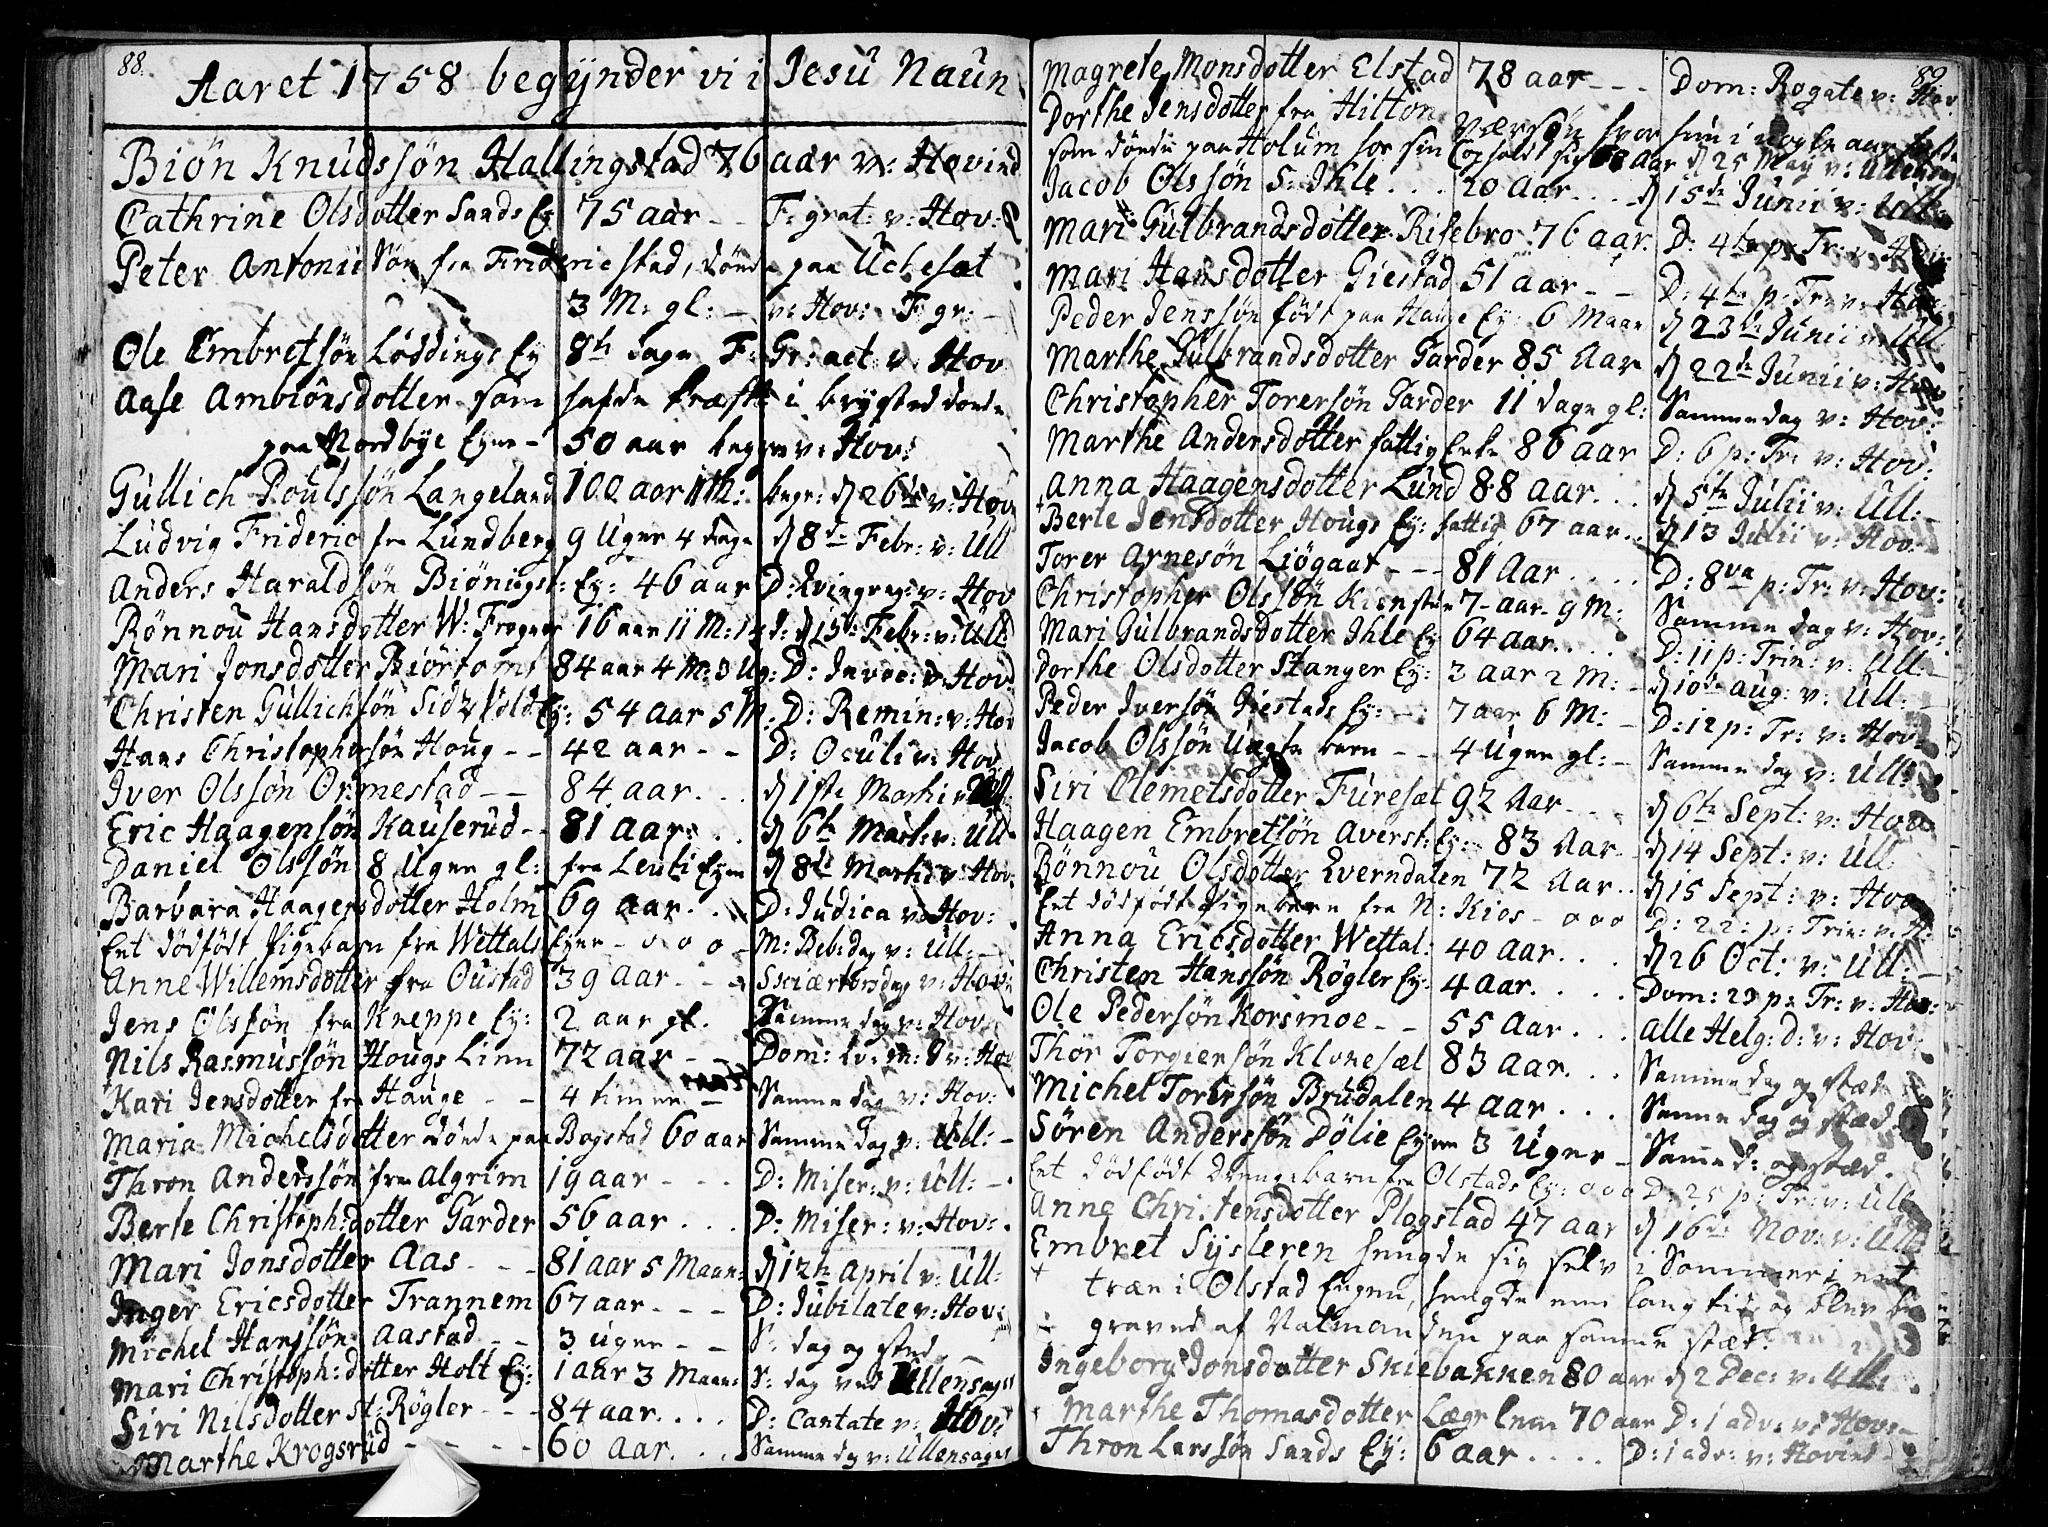 88.
Aaret 1758 begÿnder vi i Jesu Naun
Biön Knudssön Hallingstad 76 aar v: Hovind
Cathrine Olsdotter Sands Ey 75 aar - - F: grat: v: Hov:
Peter Antonii Sön fra Friderichstad, döende paa Uchesæt
3 M: gl: - v: Hov: F: gr: -
Ole Embretsön Löddings Ey 8te dage F: Gr: aet: v: Hov
Aase Ambiönsdotter som hafde kræft i brysted döende
paa Nordbye Eyne - 50 aar begr v: Hov:
Gullich Poulssön Langeland 100 aar 11 M: begr: d 26de v: Hov
Ludvig Frideric fra Lundberg 9 Uger 4 dage d 8de Febr: v: Ull
Anders Haraldsön Biöningst: Ey: 46 aar D: Qvinqvag: v: Hov
Rönnou Hansdotter W: Frogner 16 aar 11 M: d 15de Febr: v: Ull
Mari Jonsdotter Biörtomt 84 aar 4 M: 3 Ug: D: Invoc: v: Hov
Christen Gullichsön Ey: 54 aar 5 M. D: Remin: v: Hov
Hans Christophersön Houg - - 42 aar - - D: Oculi v: Hov
Iver Olssön Ormestad - - 84 aar. . . d 1ste Martii v: Ull
Eric Haagensön Kauserud - - 81 aar: . . d 6te Mart: v: Ull
Daniel Olssön 8 Uger gl: fra Ey d 8de Martii v: Hov:
Barbara Haagensdotter Holm 69 aar. . . D: Judica v: Hov:
Eet dödfödt Pigebarn fra Wettals Eyne - o o o - M: Beb: dag v: Ull: -
Anne Willemsdotter fra Oustad 39 aar - - - Sviærtorsdag v: Hov:
Jens Olssön fra Kneppe Ey: 2 aar gl. Samme dag v: Hov:
Nils Rasmussön Hougs 72 aar - - Dom: v: Hov
Kari Jensdotter fra Hauge - - 4 timer - Samme dag v: Hov:
Maria Michelsdotter döende paa Bogstad 60 aar Samme dag v: Ull: -
Thron Anderssön fra Algrim 19 aar - - - D: Miser: v: Ull: -
Berte Christoph: dotter Garder 56 aar . . . D: Miser: v: Hov: .
Mari Jonsdotter Aas - - - 81 aar 5 Maan: d 12te April v: Ull:
Inger Ericsdotter Trannem 67 aar - - - D: Jubilate v: Hov:
Michel Hanssön Aastad - - 3 uger - - S: dag og sted -
Mari Christoph: dotter Holt Ey: 1 aar 3 Maan: S: dag ved Ullensager
Siri Nilsdotter St: Rögler - - - 84 aar. . . . D: Cantate v: Hov:
Marthe Krogsrud - - - - 60 aar. . . Samme dag v: Ullensager
89.
Magrete Monsdotter Elstad 78 aar - - - Dom: Rogate v: Hov
Dorthe Jensdotter fra Hilton hvor hun i nogle aar
som döede paa Holum hos sin 68 aar d 25 May v: Ullensag
Jacob Olssön S: Ihle . . . 20 aar. . . . d 15de Junii v: Ull:
Mari Gulbrandsdotter Risebro 76 aar. D: 4te p: Tr: v: Hov:
Mari Hansdotter Giestad 51 aar - - D: 4te p: Tr: v: Hov:
Peder Jenssön födt paa Hauge Ey: 6 Maan d 23de Junii v: Ull
Marthe Gulbrandsdotter Garder 85 Aar d 22de Junii v: Hov
Christopher Torersön Garder 11 dage gl: Samme dag v: Hov:
Marthe Andersdotter fattig Enke 86 aar D: 6 p: Tr: v: Hov:
Anna Haagensdotter Lund 88 aar. . . d 5te Julii v: Ull: -
Berte Jensdotter Hougs Ey: fattig 67 aar. . d 13 Julii v: Hov: -
Torer Arnesön Liögaat - - - 81 Aar. . . . D: 8va p: Tr: v: Hov:
Christopher Olssön 7 - aar - 9 M: Samme dag v: Hov:
Mari Gulbrandsdotter Ihle Ey 64 aar. . . . D: 11 p: Trin: v: Ull: -
Dorthe Olsdotter Stanger Ey: 3 aar 2 M: - d 10de aug: v: Ull: -
Peder Iversön Giestads Ey: - 7 aar 6 M: - D: 12 p: Tr: v: Hov:
Jacob Olssön barn - - 4 Uger gl: - Samme dag v: Ull:
Siri Clemetsdotter Furesæt 92 Aar - - - d 6te Sept: v: Hov
Haagen Embretsön Averst: Ey: - 83 Aar - d 14 Sept: v: Ull:
Rönnou Olsdotter Qverndalen 72 Aar. . d 15 Sept: v: Hov
Eet dödfödt Pigebarn fra N: Kios - o o o D: 22: p: Trin: v: H:
Anna Ericsdotter Wettal: 40 aar. . . . d 26 Oct: v: Ull: -
Christen Hanssön Rögler Ey: 4 aar. . . . Dom: 23 p: Tr: v: Hov:
Ole Pedersön Korsmoe - - 55 Aar. . . . Alle Helg: D: v: Hov:
Thor Torgiersön Klonesæt 83 aar. . . . Samme dag og stæd
Michel Torersön Brudalen 4 aar . . . Samme dag og stæd
Sören Anderssön Dölie Eyne 3 Uger - Samme d: og stæd.
Eet dödfödt drengebarn fra Olstads Ey: o o o D: 25 p: Tr: v: Ull
Anne Christensdotter Plogstad 47 aar d 16de Nov: v: Ull:
Embret Sysleren hengde sig selv i Sommer i eet
træe i Olstad Eigen, hengde een lang tid, og blev be
graved af Natmanden paa samme stæd.
Ingeborg Jonsdotter Skiebakken 80 aar d 2 Dec: v: Ull: .
Marthe Thomasdotter Lægs lem 70 aar D: 1 adv: v: Hov: -
Thron Larssön Sands Ey: 6 aar . . . . D: 1 adv: v: Hovind -